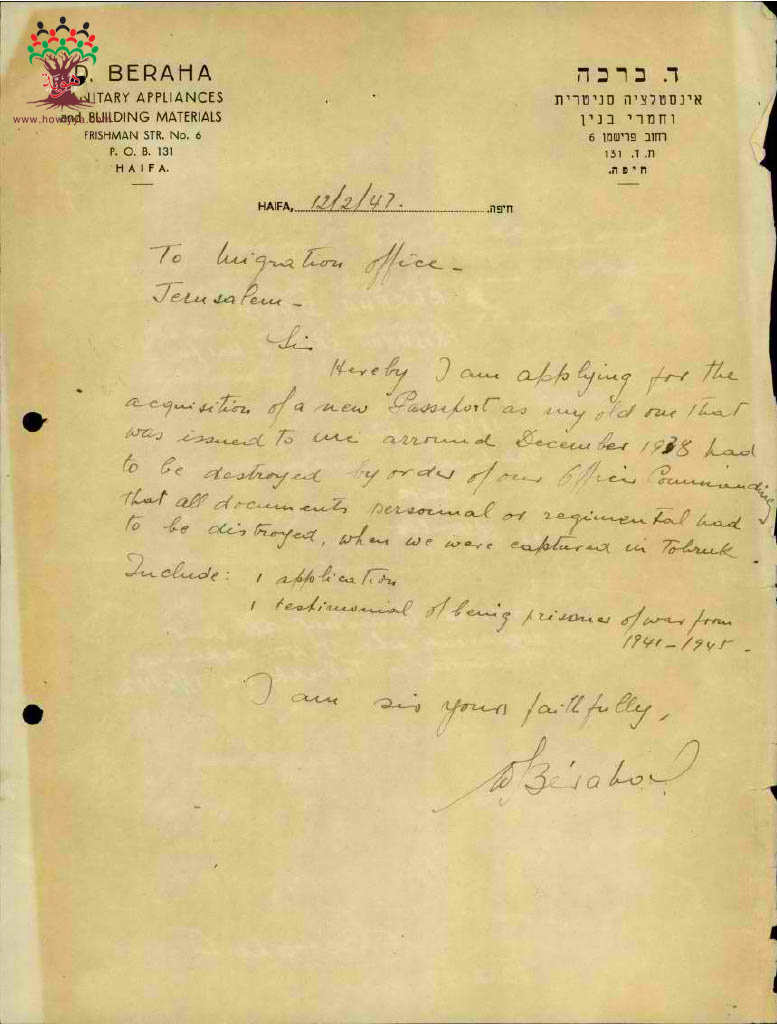 هوية
www.howiyya.com
D. BERAHA
SANITARY APPLIANCES
and BUILDING MATERIALS
FRISHMAN STR. No. 6
P. O. B. 131
HAIFA.
ד. ברכה
אינסטלציה סניטרית
וחמרי בנין
רחוב פרישמן 6
ת. ד. 131
חיפה.
HAIFA, 12/2/47. חיפה.
To Migration office -
Jerusalem -
Sir
Hereby I am applying for the
acquisition of a new Passeport as my old one that
was issued to me arround December 1938 had
to be destroyed by order of our Officer Commanding
that all documents personnal or regimental had
to be distroyed, when we were captured in Tobruk.
Include: 1 application
1 testimonial of being prisoner of war from
1941-1945.
I am sir yours faithfully,
D Béraha